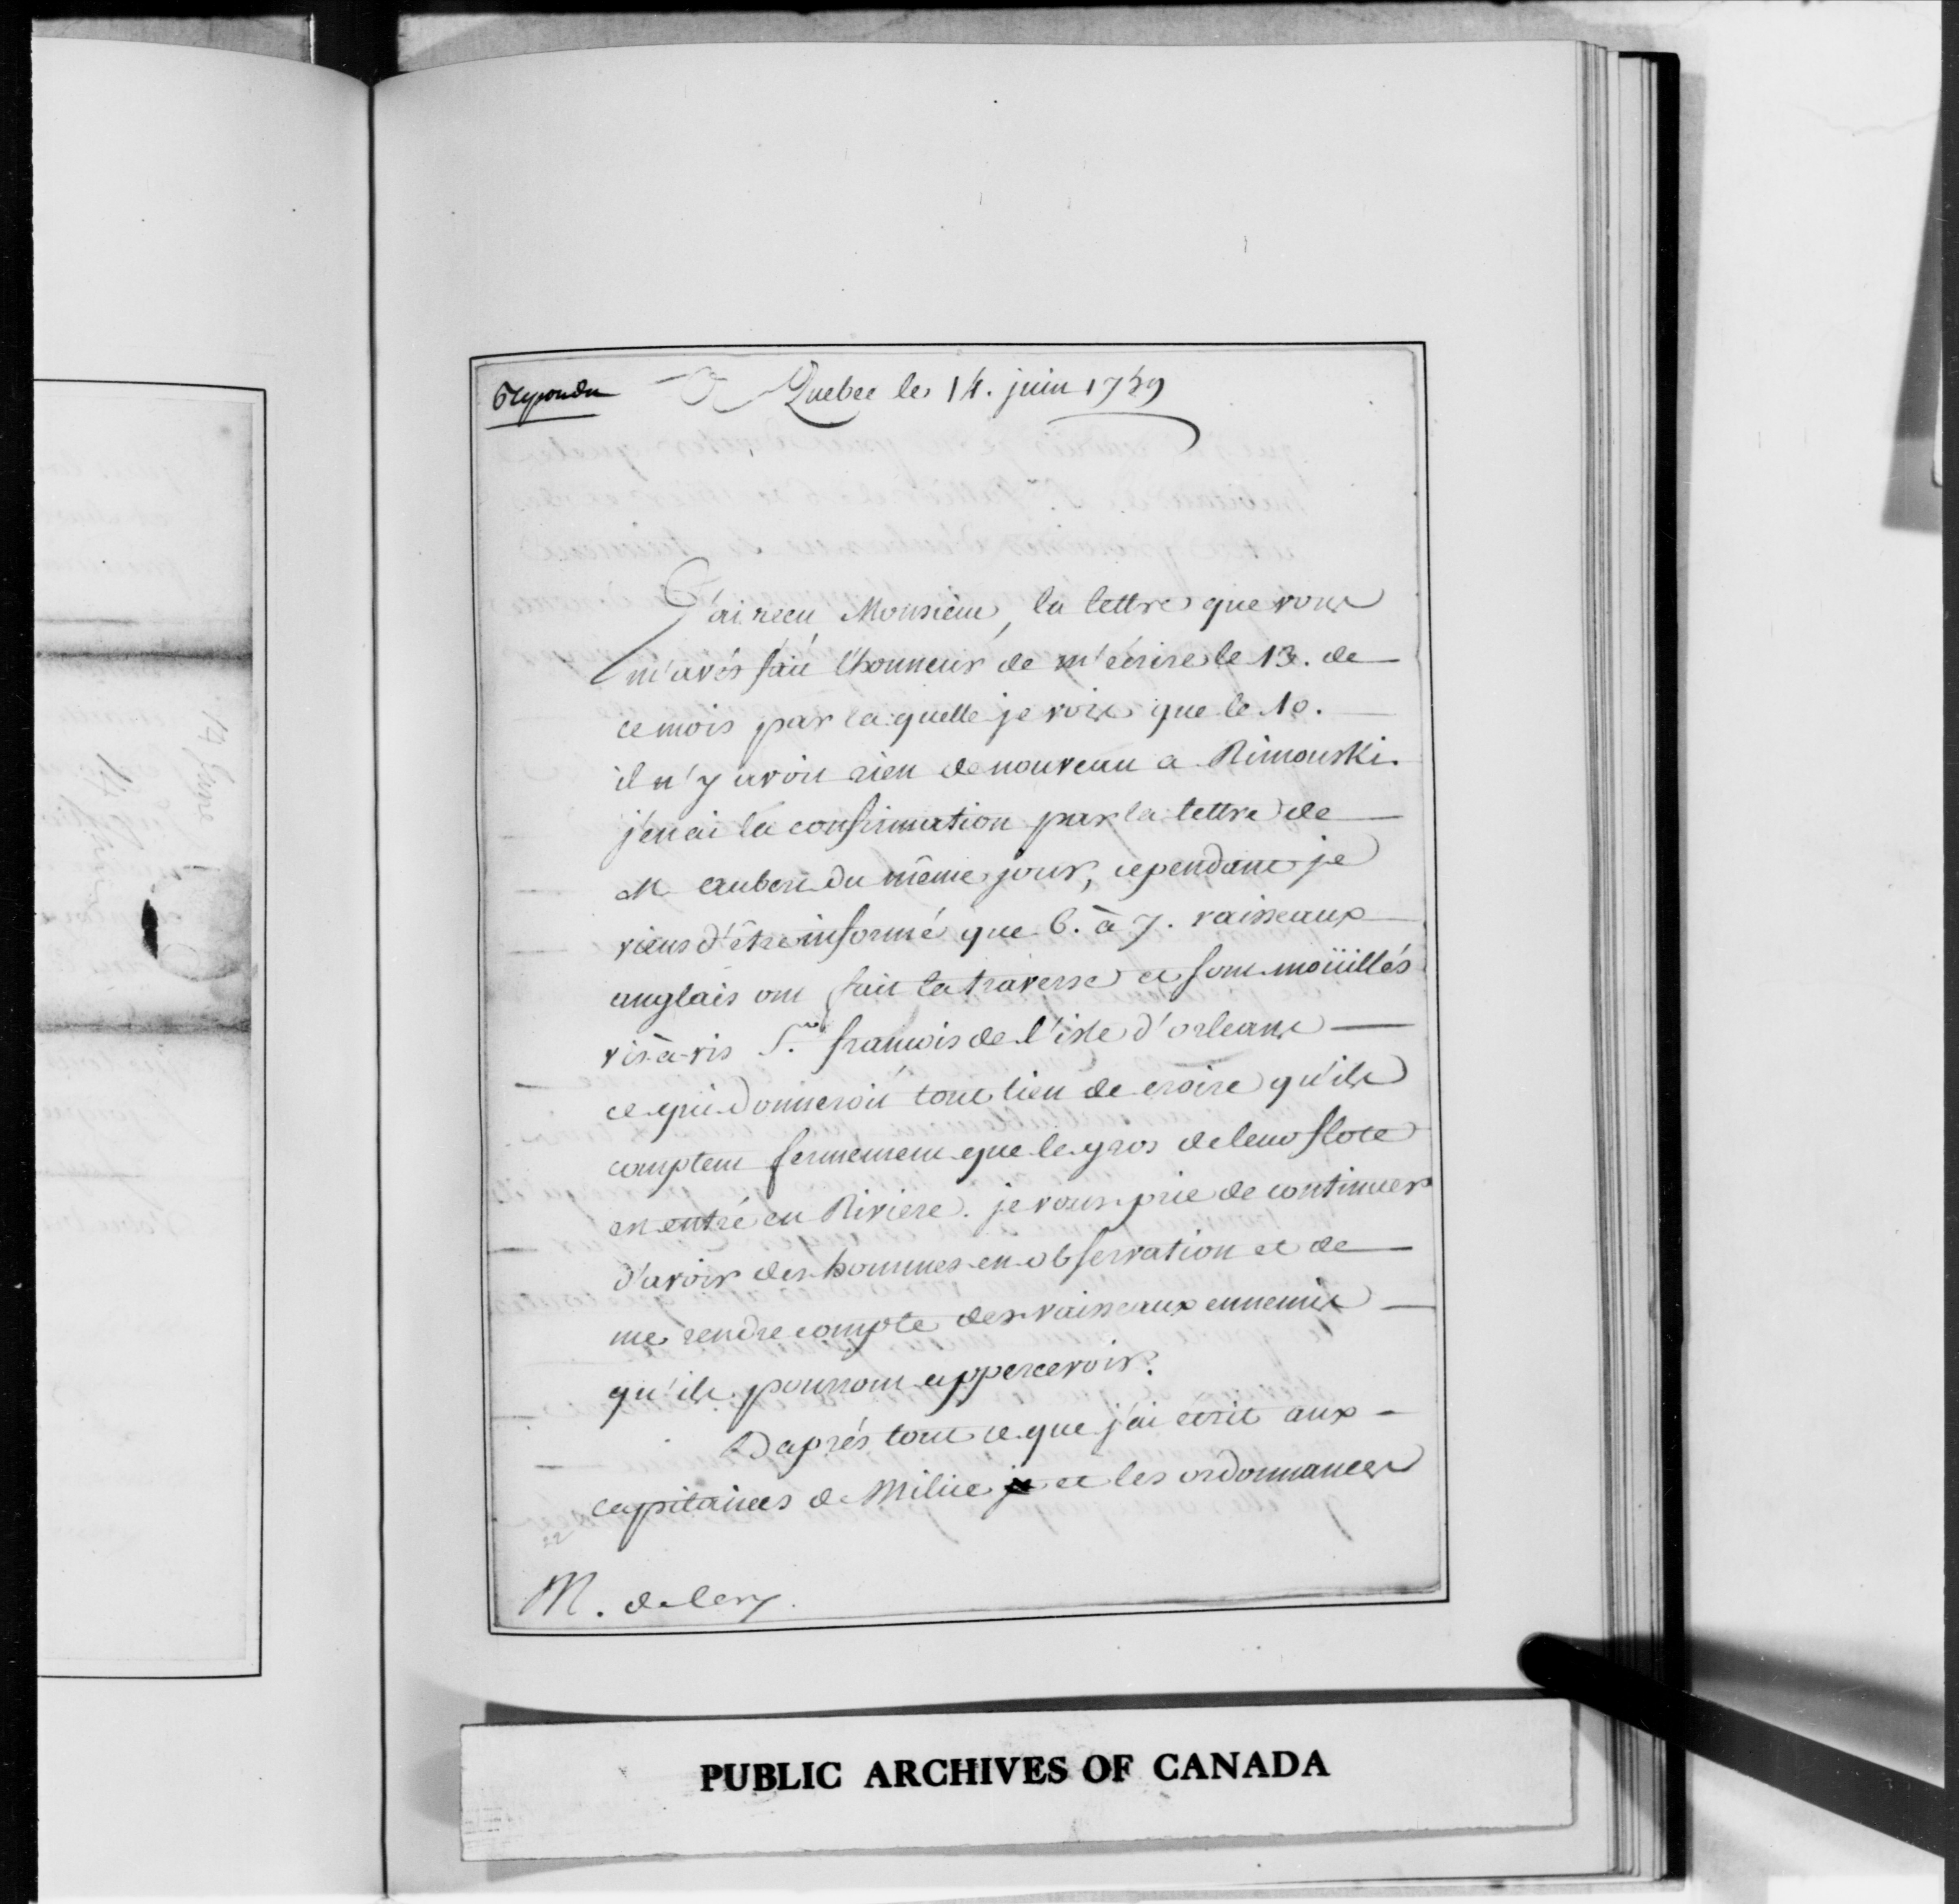 Repondu
A Quebec le 14. juin 1759
J'ai recu Monsieur, la lettre que vous
m'avés fait l'honneur de m'écrire le 13. de
ce mois par laquelle je vois que le 10.
il n'y avoit rien de nouveau a Rimouski.
j'en ai la confirmation par la lettre de
M aubert du même jour, cependant je
viens d'être informé que 6. à 7. vaisseaux
anglais ont fait la traverse et sont moüillés
vis-à-vis St. francois de l'isle d'orleans
ce qui donneroit tout lieu de croire qu'ils
comptent fermement que le gros de leur flote
est entré en Riviere. je vous prie de continuer
d'avoir des hommes en observation et de
me rendre compte des vaisseaux ennemis
qu'ils pourront appercevoir.
D'aprés tout ce que j'ai écrit aux
capitaines de Milice et les ordonnances
22
M. de lery.
PUBLIC ARCHIVES OF CANADA